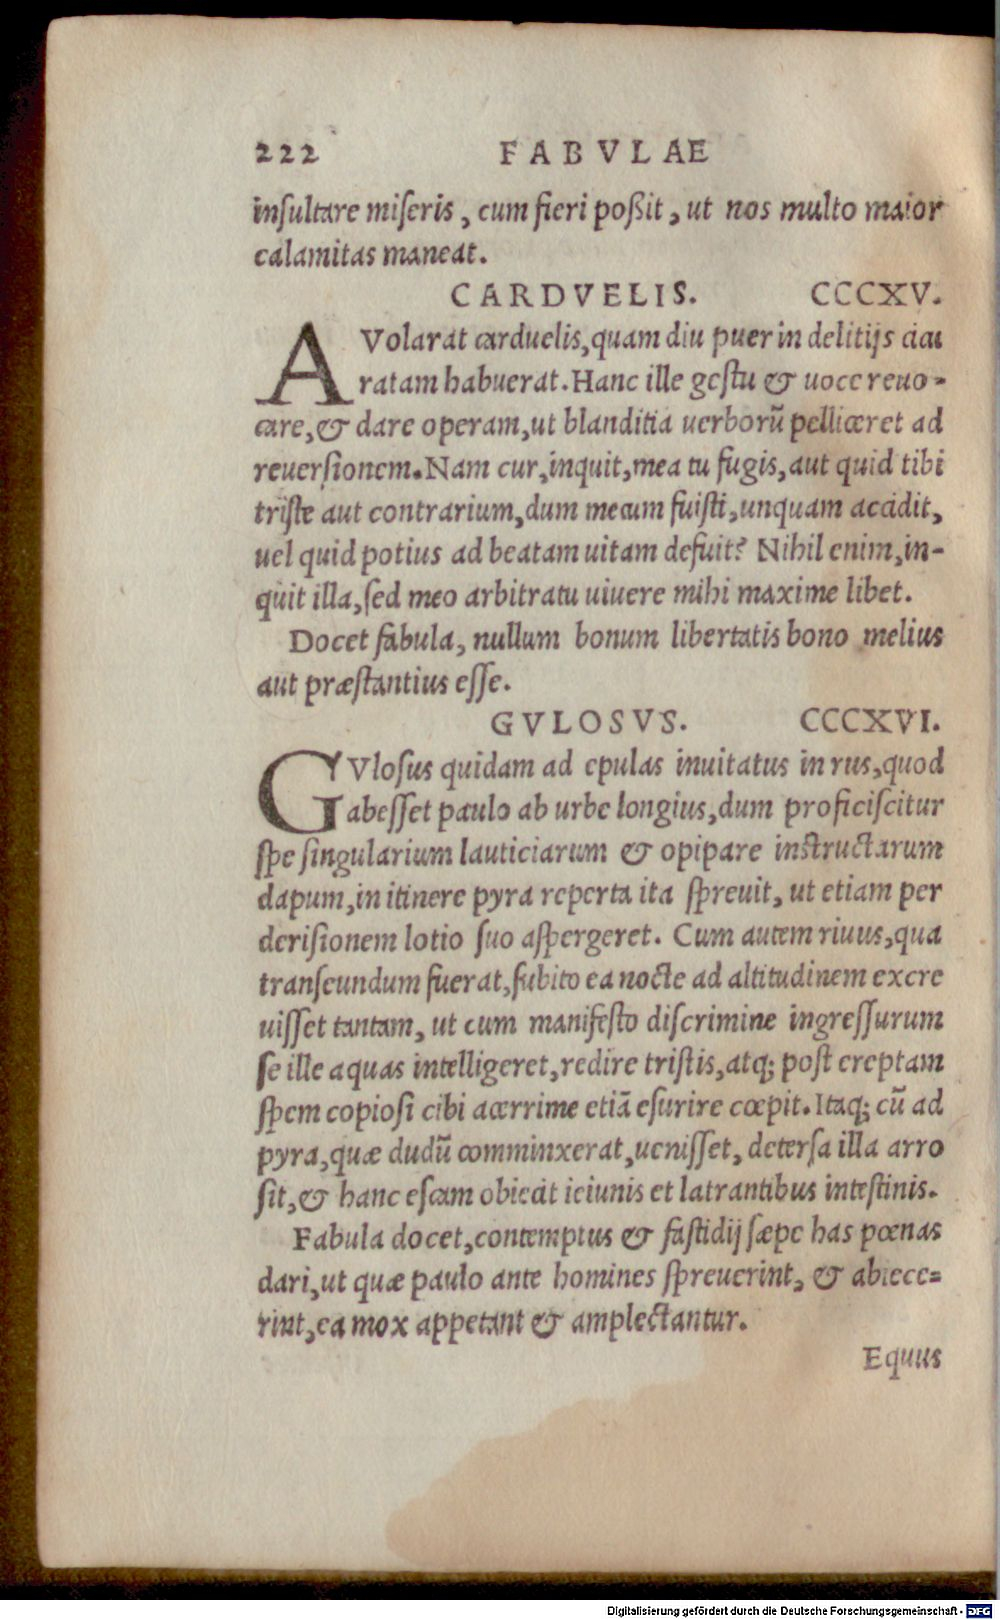 222 FABVLAE
insultare miseris, cum fieri poßit, ut nos multo maior
calamitas maneat.
CARDVELIS. CCCXV.
AVolarat carduelis, quam diu puer in delitijs cicu
ratam habuerat. Hanc ille gestu & uoce reuo-
care, & dare operam, ut blanditia uerborũ pelliceret ad
reuersionem. Nam cur, inquit, mea tu fugis, aut quid tibi
triste aut contrarium, dum mecum fuisti, unquam accidit,
uel quid potius ad beatam uitam defuit? Nihil enim, in-
quit illa, sed meo arbitratu uiuere mihi maxime libet.
Docet fabula, nullum bonum libertatis bono melius
aut præstantius esse.
GVLOSVS. CCCXVI.
GVlosus quidam ad epulas inuitatus in rus, quod
abesset paulo ab urbe longius, dum proficiscitur
spe singularium lauticiarum & opipare instructarum
dapum, in itinere pyra reperta ita spreuit, ut etiam per
derisionem lotio suo aspergeret. Cum autem riuus, qua
transeundum fuerat, subito ea nocte ad altitudinem excre
uisset tantam, ut cum manifesto discrimine ingressurum
se ille aquas intelligeret, redire tristis, atq; post ereptam
spem copiosi cibi acerrime etiã esurire cœpit. Itaq; cũ ad
pyra, quæ dudũ comminxerat, uenisset, detersa illa arro
sit, & hanc escam obiecit ieiunis et latrantibus intestinis.
Fabula docet, contemptus & fastidij sæpe has pœnas
dari, ut quæ paulo ante homines spreuerint, & abiece-
rint, ea mox appetant & amplectantur.
Equus
Digitalisierung gefördert durch die Deutsche Forschungsgemeinschaft - DFG